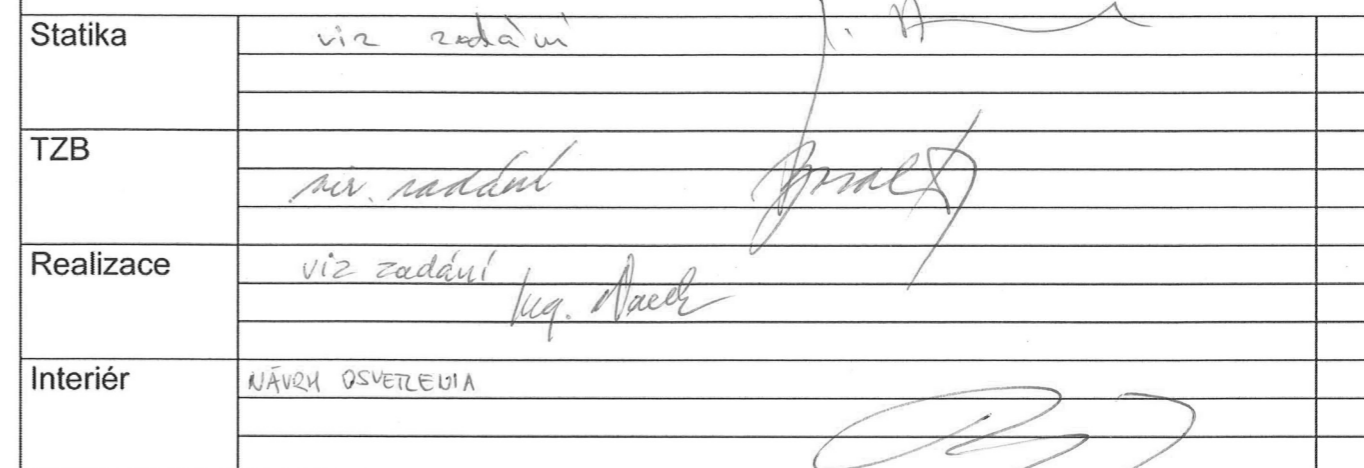 Statika viz zadání
TZB
viz. zadání
Realizace viz zadání
Ing.
Interiér NÁVRH OSVETLENIA